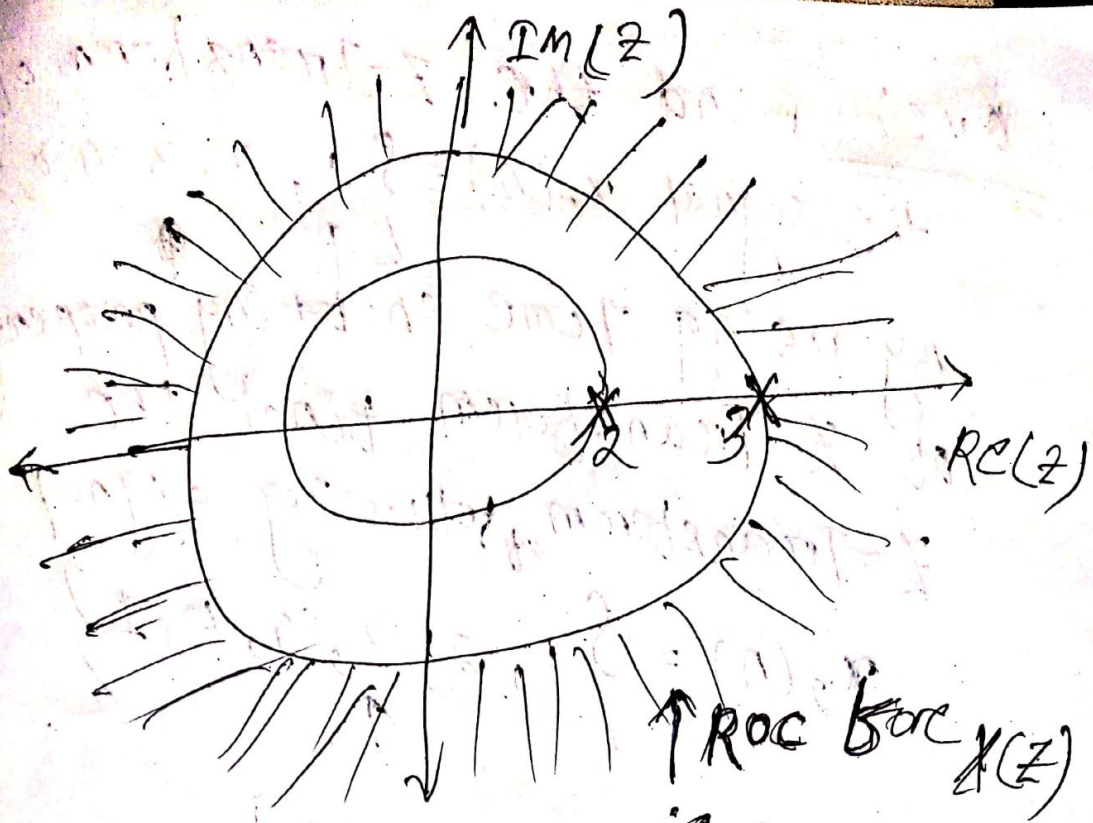 IM(Z)
2
3
RE(Z)
ROC for X(Z)